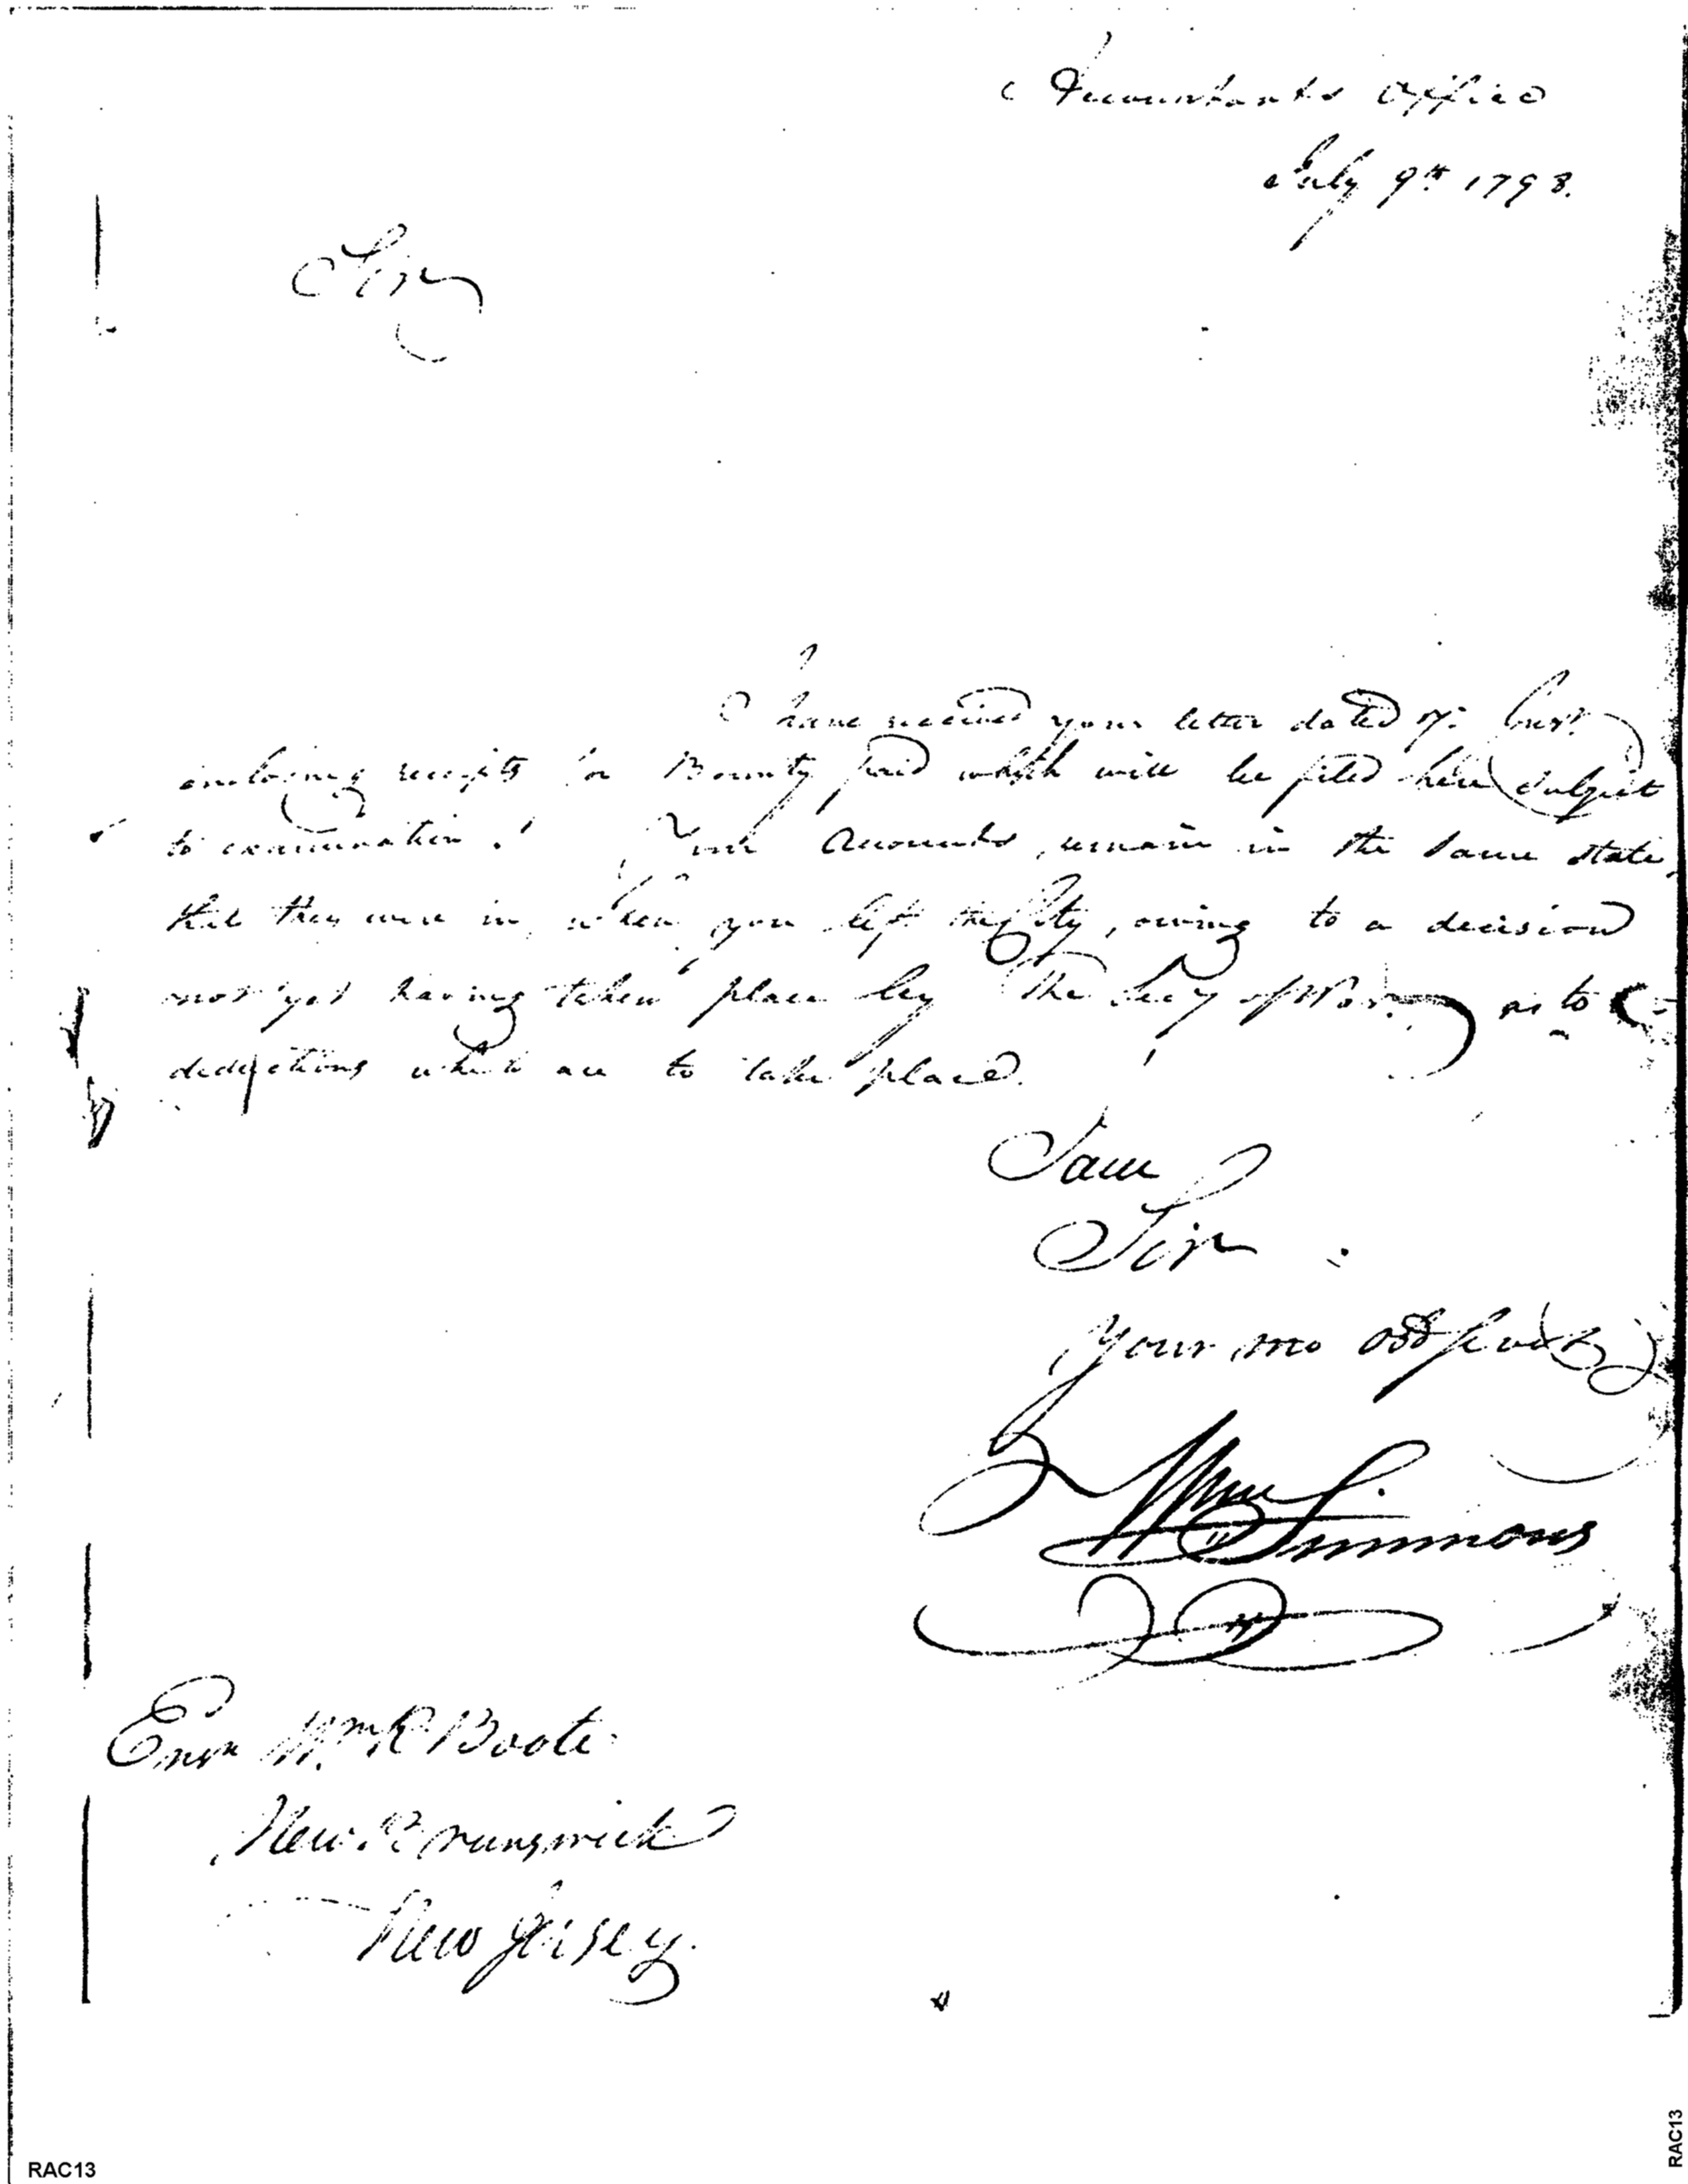 Accountants Office
July 9th 1798.
Sir
I have received your letter dated 7: Inst.
enclosing receipts for Bounty paid which will be filed here subject
to examination. Your Accounts, remain in the same state
that they were in, when you left the City, owing to a decision
not yet having taken place by the Secy of War as to
deductions which are to take place.
I am
Sir
Your mo Obd Servt
Wm Simmons
Ensn Wm R Boote
New Brunswick
New Jersey.
RAC13
RAC13